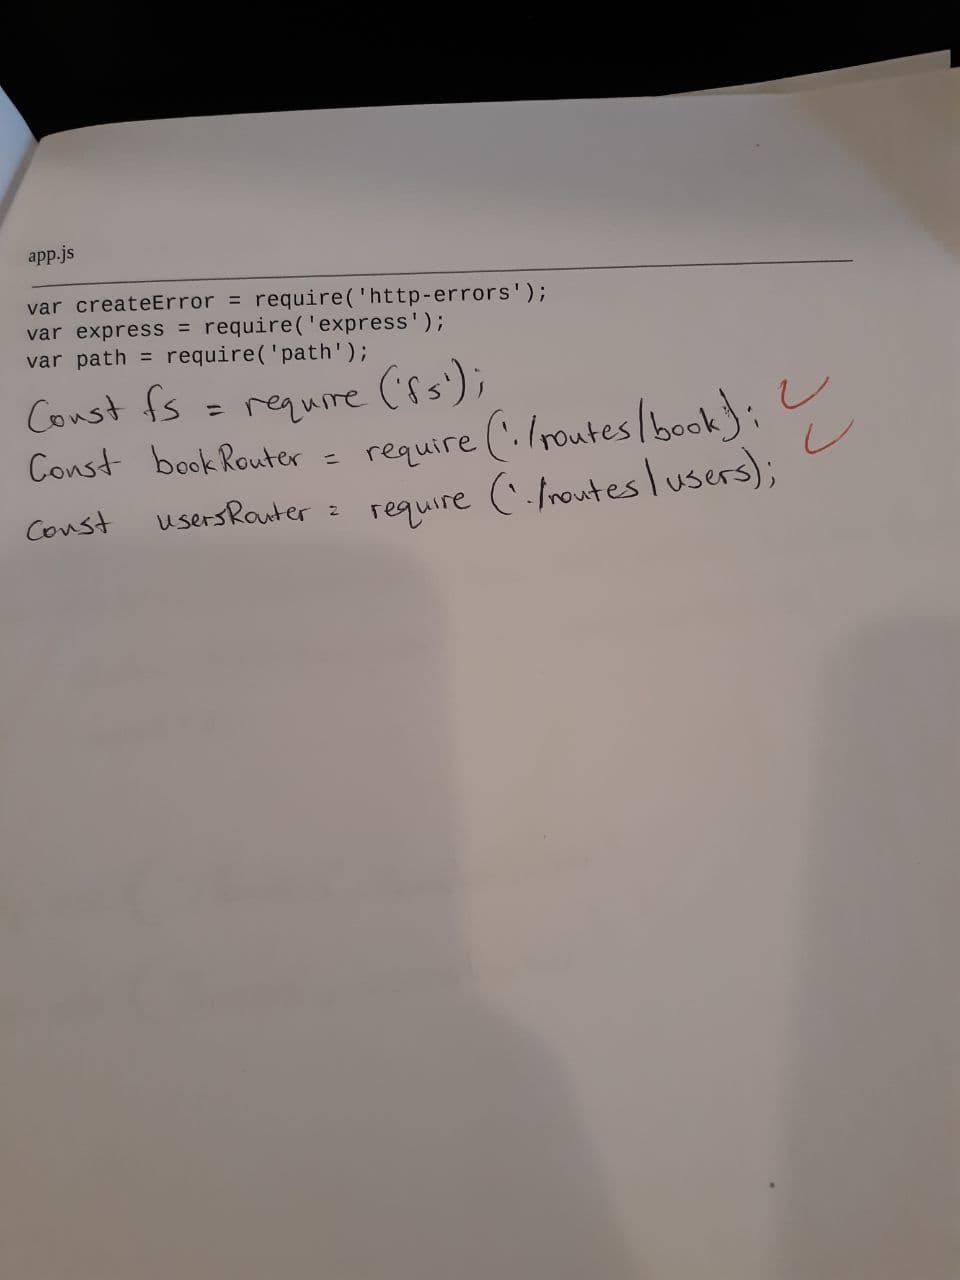 app.js
var createError = require('http-errors');
var express = require('express');
var path = require('path');
Const fs = require ('fs');
Const bookRouter = require ('./routes/book');
Const usersRouter = require ('./routes/users);